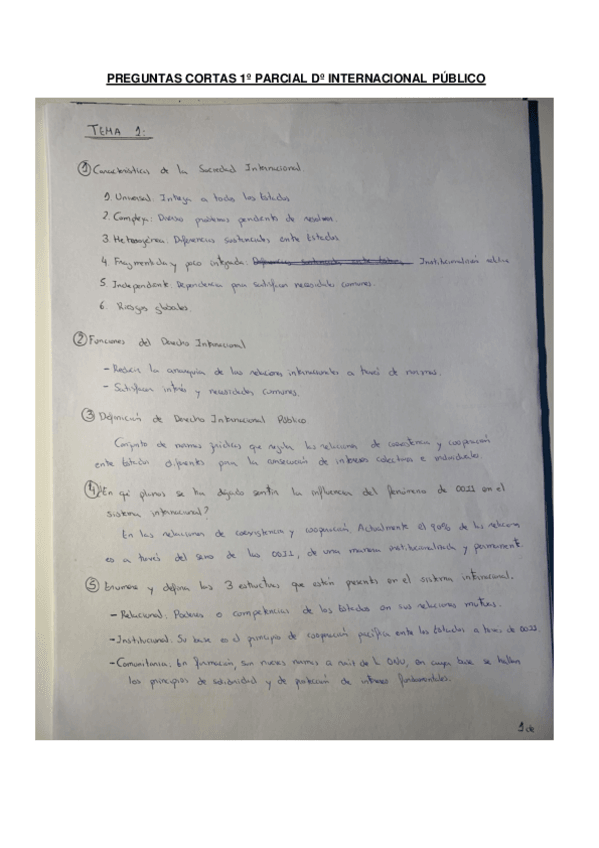 PREGUNTAS CORTAS 1º PARCIAL Dº INTERNACIONAL PÚBLICO
TEMA 1:
① Características de la Sociedad Internacional
1. Universal: Integra a todos los Estados
2. Compleja: Diversos problemas pendientes de resolver.
3. Heterogénea: Diferencias sustanciales entre Estados
4. Fragmentada y poco integrada: Institucionalización relativa
5. Independiente: Dependencia para satisfacer necesidades comunes.
6. Riesgos globales.
② Funciones del Derecho Internacional
- Reducir la anarquía de las relaciones internacionales a través de normas.
- Satisfacer interés y necesidades comunes.
③ Definición de Derecho Internacional Público
Conjunto de normas jurídicas que regulan las relaciones de coexistencia y cooperación
entre Estados diferentes para la consecución de intereses colectivos e individuales.
④ ¿En qué planos se ha dejado sentir la influencia del fenómeno de OOII en el
sistema internacional?
En las relaciones de coexistencia y cooperación. Actualmente el 90% de las relaciones
es a través del seno de las OOII, de una manera institucionalizada y permanente.
⑤ Enumere y defina las 3 estructuras que están presentes en el sistema internacional.
- Relacional: Poderes o competencias de los Estados en sus relaciones mutuas.
- Institucional: Su base es el principio de cooperación pacífica entre los Estados a través de OOII.
- Comunitaria: En formación, son nuevas normas a raíz de la ONU, en cuya base se hallan
los principios de solidaridad y de protección de intereses fundamentales.
1 de